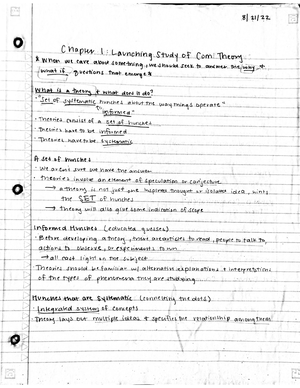 8/31/22
Chapter 1: Launching Study of Com. Theory
* When we care about something, we should seek to answer the why &
what if questions that emerge *
What is a theory & what does it do?
- "Set of systematic hunches about the way things operate"
informed
- Theories consist of a set of hunches
- Theories have to be informed
- Theories have to be systematic
A set of hunches
- We aren't sure we have the answer
- Theories involve an element of speculation or conjecture
→ a theory is not just one inspired thought or isolated idea, hints
the SET of hunches
→ theory will also give some indication of scope
Informed Hunches (educated guesses)
- Before developing a theory, there are articles to read, people to talk to,
actions to observe, or experiments to run
→ all cast light on the subject
Theories should be familiar w/ alternative explanations & interpretations
of the types of phenomena they are studying
Hunches that are Systematic (connecting the dots)
Integrated system of concepts
Theory lays out multiple ideas & specifies the relationship among them